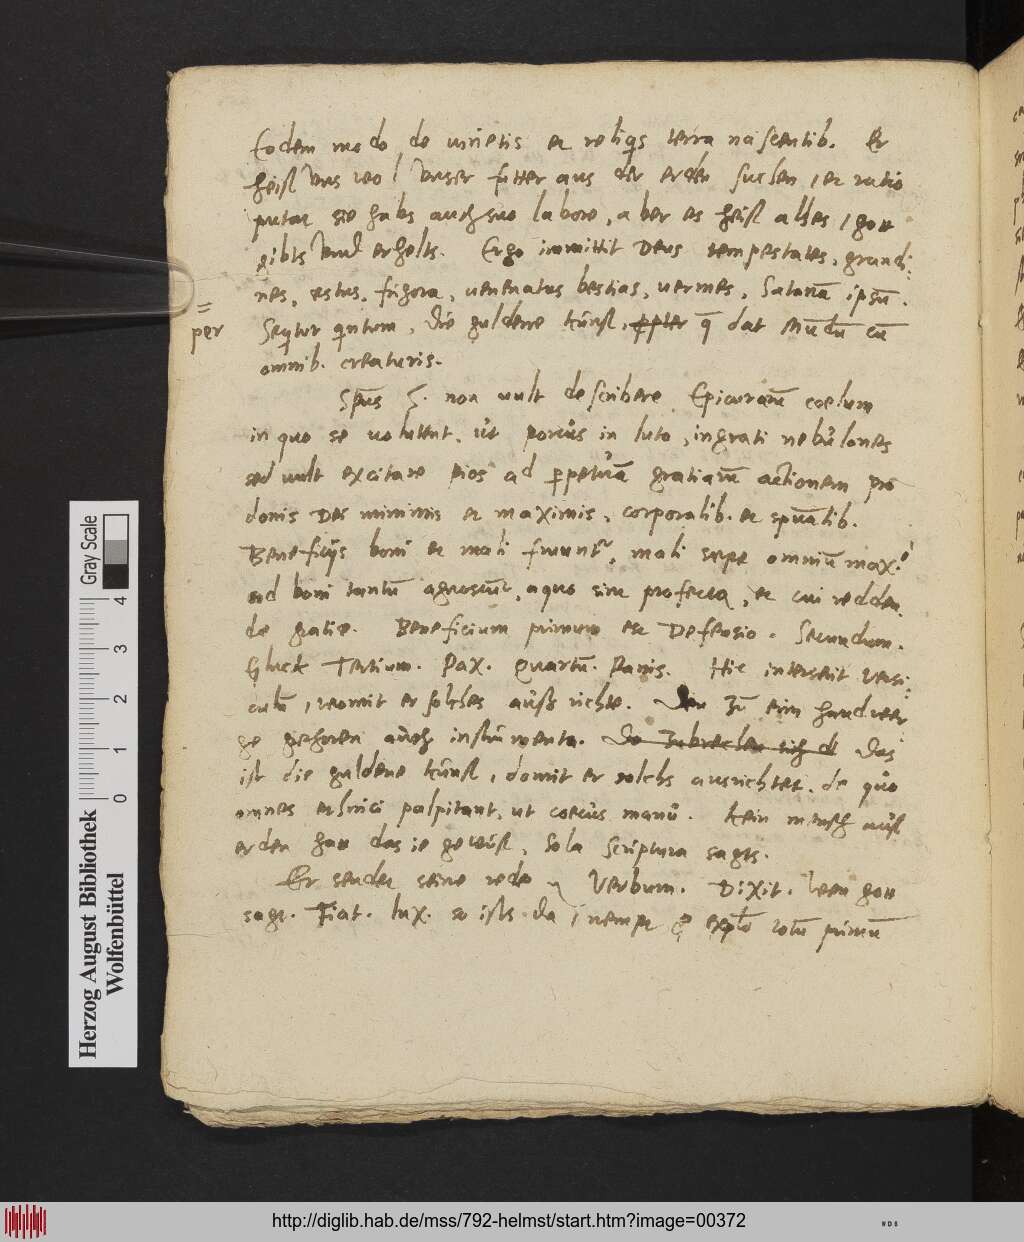 Eodem modo de vinetis et reliqis terra nascentib. Er
heist uns wol unser futter aus der erden suchen, et ratio
putat sie habs auch suo labore, aber es heist alles, gott
gibts und erhelts. Ergo immittit Deus tempestates, grandi:
nes, estus, frigora, venenatas bestias, vermes, Satanā ipsū.
per
Seqitur qintum, die guldene kunst, ppter q̄ dat mūdū cū
omnib. creaturis.
Spūs S. non vult describere Epicuraeū coelum
in quo se volutent, ut porcus in luto, ingrati nebulones
sed vult excitare pios ad ppetuā gratiarū actionem pro
donis Dei minimis et maximis, corporalib. et spūalib.
Beneficijs boni et mali fruuntr, mali sepe omniū max:e
sed boni tantū agnoscūt, a quo sint profecta, et cui redden
de gratie. Beneficium primum est Defensio. Secundum.
Gluck Tertium. Pax. Quartū. Panis. Hic interserit versi:
culū, womit er solches ausrichte. Den zū eim handwer
ge gehoren auch instrumenta. Do zubrechen sich d Das
ist die guldene kunst, domit er solchs ausrichtet. de quo
omnes ethnici palpitant, ut coecus manū. Kein mensch auff
erden hatt das ie gewust, Sola Scriptura sagts.
Er sendet seine rede Verbum. Dixit. wen gott
sagt. Fiat. lux. so ists da, nempe totū primū
Herzog August Bibliothek
Wolfenbüttel
Gray Scale
0 1 2 3 4
http://diglib.hab.de/mss/792-helmst/start.htm?image=00372